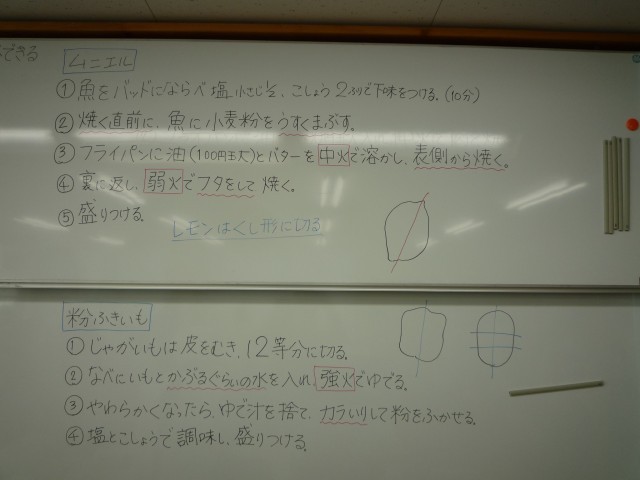 できる
ムニエル
①魚をバッドにならべ塩小さじ½、こしょう2ふりで下味をつける。(10分)
②焼く直前に、魚に小麦粉をうすくまぶす。
③フライパンに油(100円玉大)とバターを中火で溶かし、表側から焼く。
④裏に返し、弱火でフタをして焼く。
⑤盛りつける。
レモンはくし形に切る
粉ふきいも
①じゃがいもは皮をむき、12等分に切る。
②なべにいもとかぶるぐらいの水を入れ強火でゆでる。
③やわらかくなったら、ゆで汁を捨て、カラいりして粉をふかせる。
④塩とこしょうで調味し、盛りつける。